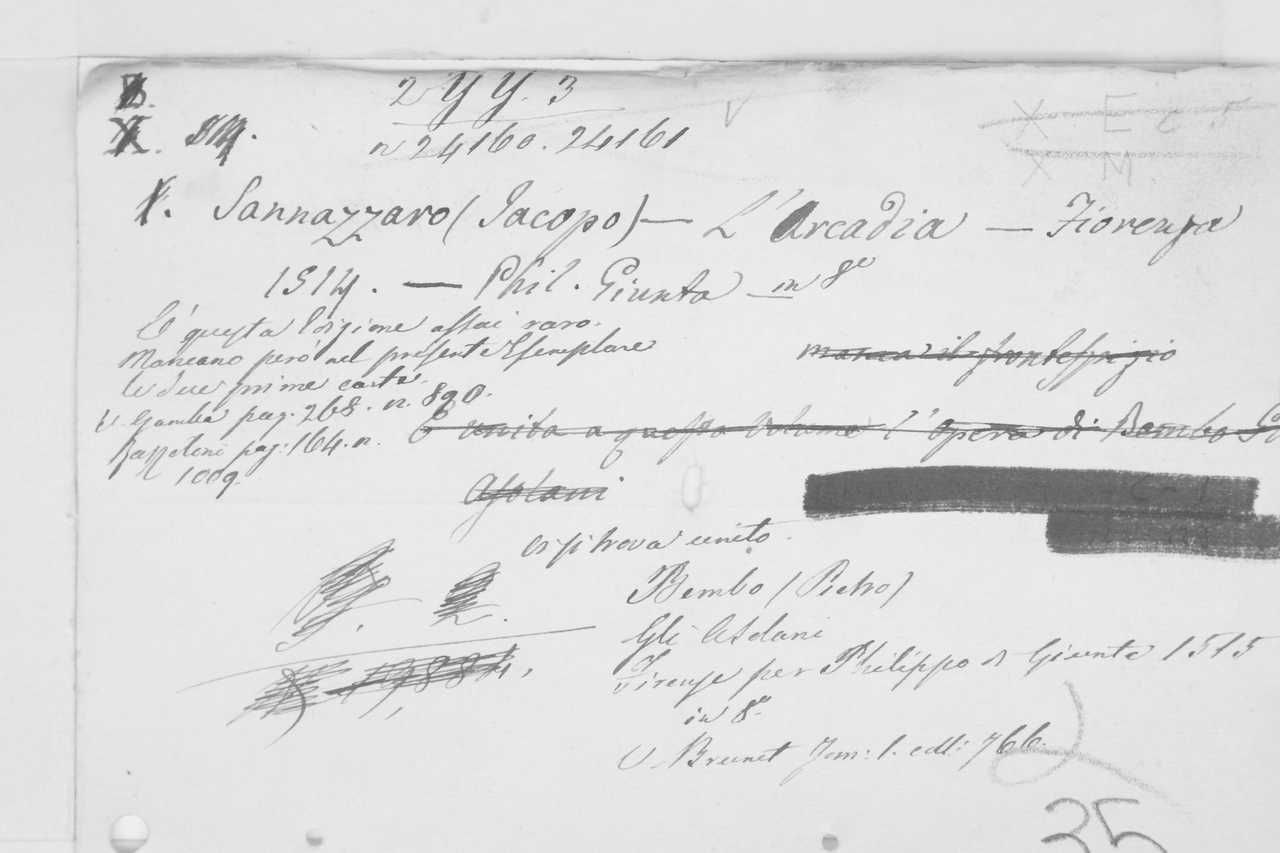 2 YY. 3
n 24160. 24161
X E
X M
Sannazzaro (Jacopo) — L'Arcadia — Fiorenza
1514. — Phil. Giunta — in 8º
E' questa Edizione assai rara.
Mancano però nel presente Esemplare
le due prime carte.
manca il frontespizio
V. Gamba pag. 268. n. 890.
È unita a questo Volume l'opera di Bembo
pag. 164. n.
1009
Asolani
vi si trova unito.
Bembo (Pietro)
Gli Asolani
Firenze per Philippo di Giunta 1515
in 8º
19,884.
V. Brunet Tom: 1. coll: 766.
35